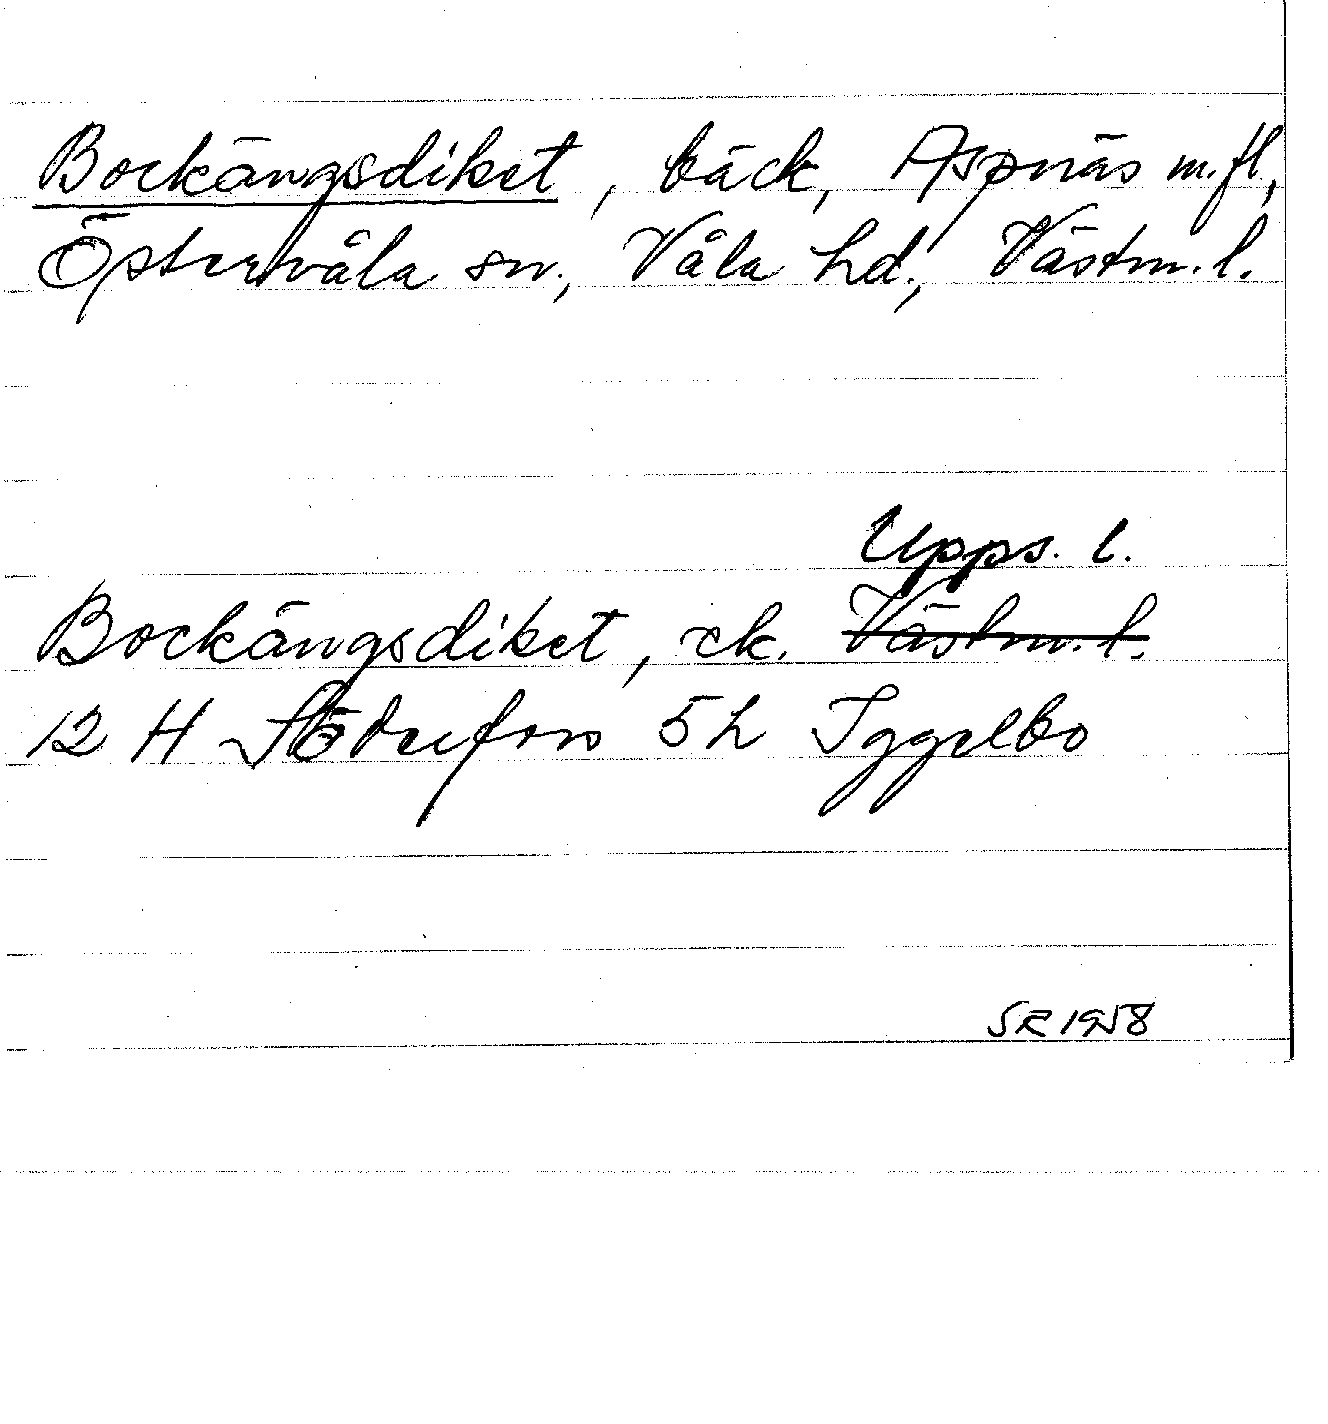 Bockängsdiket, bäck, Aspnäs m.fl,
Östervåla sn., Våla hd., Västm.l.
Upps. l.
Bockängsdiket, ek. Västm.l.
12 H Söderfors 5h Iggelbo
SR 1958